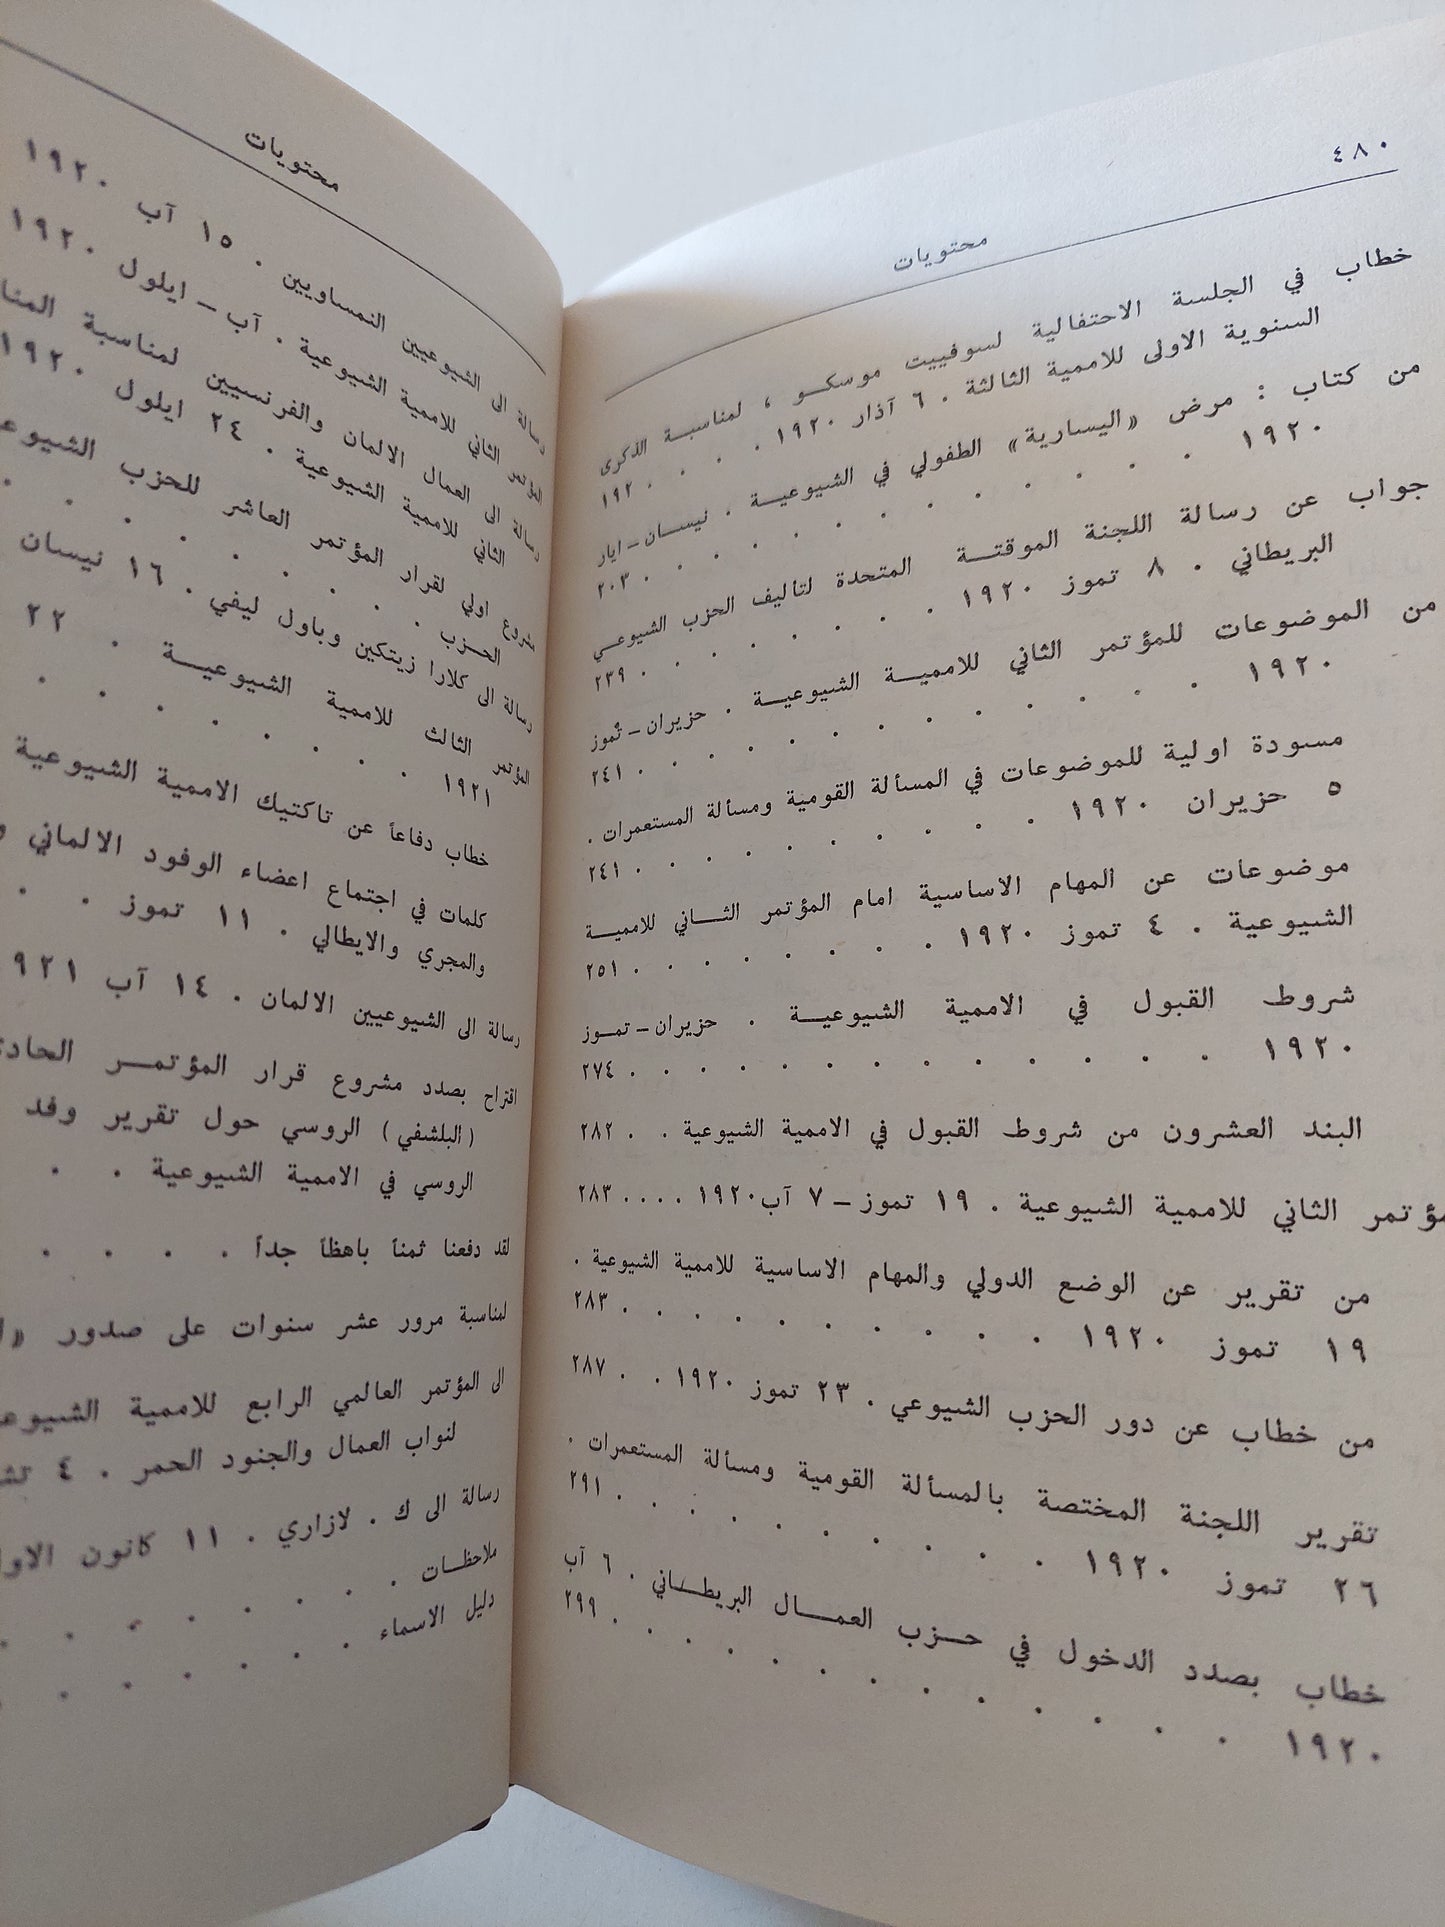 ٤٨٠
محتويات
خطاب في الجلسة الاحتفالية لسوفييت موسكـو ، لمناسبـة الذكرى
السنوية الاولى للاممية الثالثة . ٦ آذار ١٩٢٠ . . . . ١٩٢
من كتاب : مرض «اليسارية» الطفولي في الشيوعيـة . نيسـان – ايار
١٩٢٠ . . . . . . . . . . ٢٠٣
جواب عن رسالة اللجنة الموقتـة المتحدة لتأليف الحزب الشيوعـي
البريطاني . ٨ تموز ١٩٢٠ . . . . . . . ٢٣٩
من الموضوعات للمؤتمر الثاني للامميـة الشيوعيـة . حزيران – تموز
١٩٢٠ . . . . . . . . . . ٢٤١
مسودة اولية للموضوعات في المسألة القومية ومسألة المستعمرات .
٥ حزيران ١٩٢٠ . . . . . . . . ٢٤١
موضوعات عن المهام الاساسية امام المؤتمر الثـاني للامميـة
الشيوعية . ٤ تموز ١٩٢٠ . . . . . . . ٢٥١
شروط القبول في الاممية الشيوعيـة . حزيران – تمـوز
١٩٢٠ . . . . . . . . . . ٢٧٤
البند العشرون من شروط القبول في الاممية الشيوعية . . ٢٨٢
مؤتمر الثاني للاممية الشيوعية . ١٩ تموز – ٧ آب١٩٢٠ .... ٢٨٣
من تقرير عن الوضع الدولي والمهام الاساسية للاممية الشيوعية .
١٩ تموز ١٩٢٠ . . . . . . . . ٢٨٣
من خطاب عن دور الحزب الشيوعي . ٢٣ تموز ١٩٢٠ . . ٢٨٧
تقرير اللجنة المختصة بالمسألة القومية ومسألة المستعمرات .
٢٦ تموز ١٩٢٠ . . . . . . . . ٢٩١
خطاب بصدد الدخول في حـزب العمـال البريطـاني . ٦ آب
١٩٢٠ . . . . . . . . . . ٢٩٩
محتويات
رسالة الى الشيوعيين النمساويين . ١٥ آب ١٩٢٠
المؤتمر الثاني للاممية الشيوعية . آب – ايلول ١٩٢٠
رسالة الى العمال الالمان والفرنسيين لمناسبة
الثاني للاممية الشيوعية . ٢٤ ايلول ١٩٢٠
مشروع اولي لقرار المؤتمر العاشر للحزب
الحـزب . . . . . . .
رسالة الى كلارا زيتكين وباول ليفي . ١٦ نيسان
المؤتمر الثالث للاممية الشيوعيـة . ٢٢
١٩٢١ . . . . . . .
خطاب دفاعاً عن تاكتيك الاممية الشيوعية
كلمات في اجتماع اعضاء الوفود الالماني
والمجري والايطالي . ١١ تموز . .
رسالة الى الشيوعيين الالمان . ١٤ آب
اقتراح بصدد مشروع قرار المؤتمـر
(البلشفي) الروسي حول تقرير وفد
الروسي في الاممية الشيوعية . .
لقد دفعنا ثمناً باهظاً جداً . . . .
لمناسبة مرور عشر سنوات على صدور
الى المؤتمر العالمي الرابع للاممية
لنواب العمال والجنود الحمر . ٤
رسالة الى ك . لازاري . ١١ كانون
ملاحظـات . . . . . .
دليل الاسماء . . . . . .